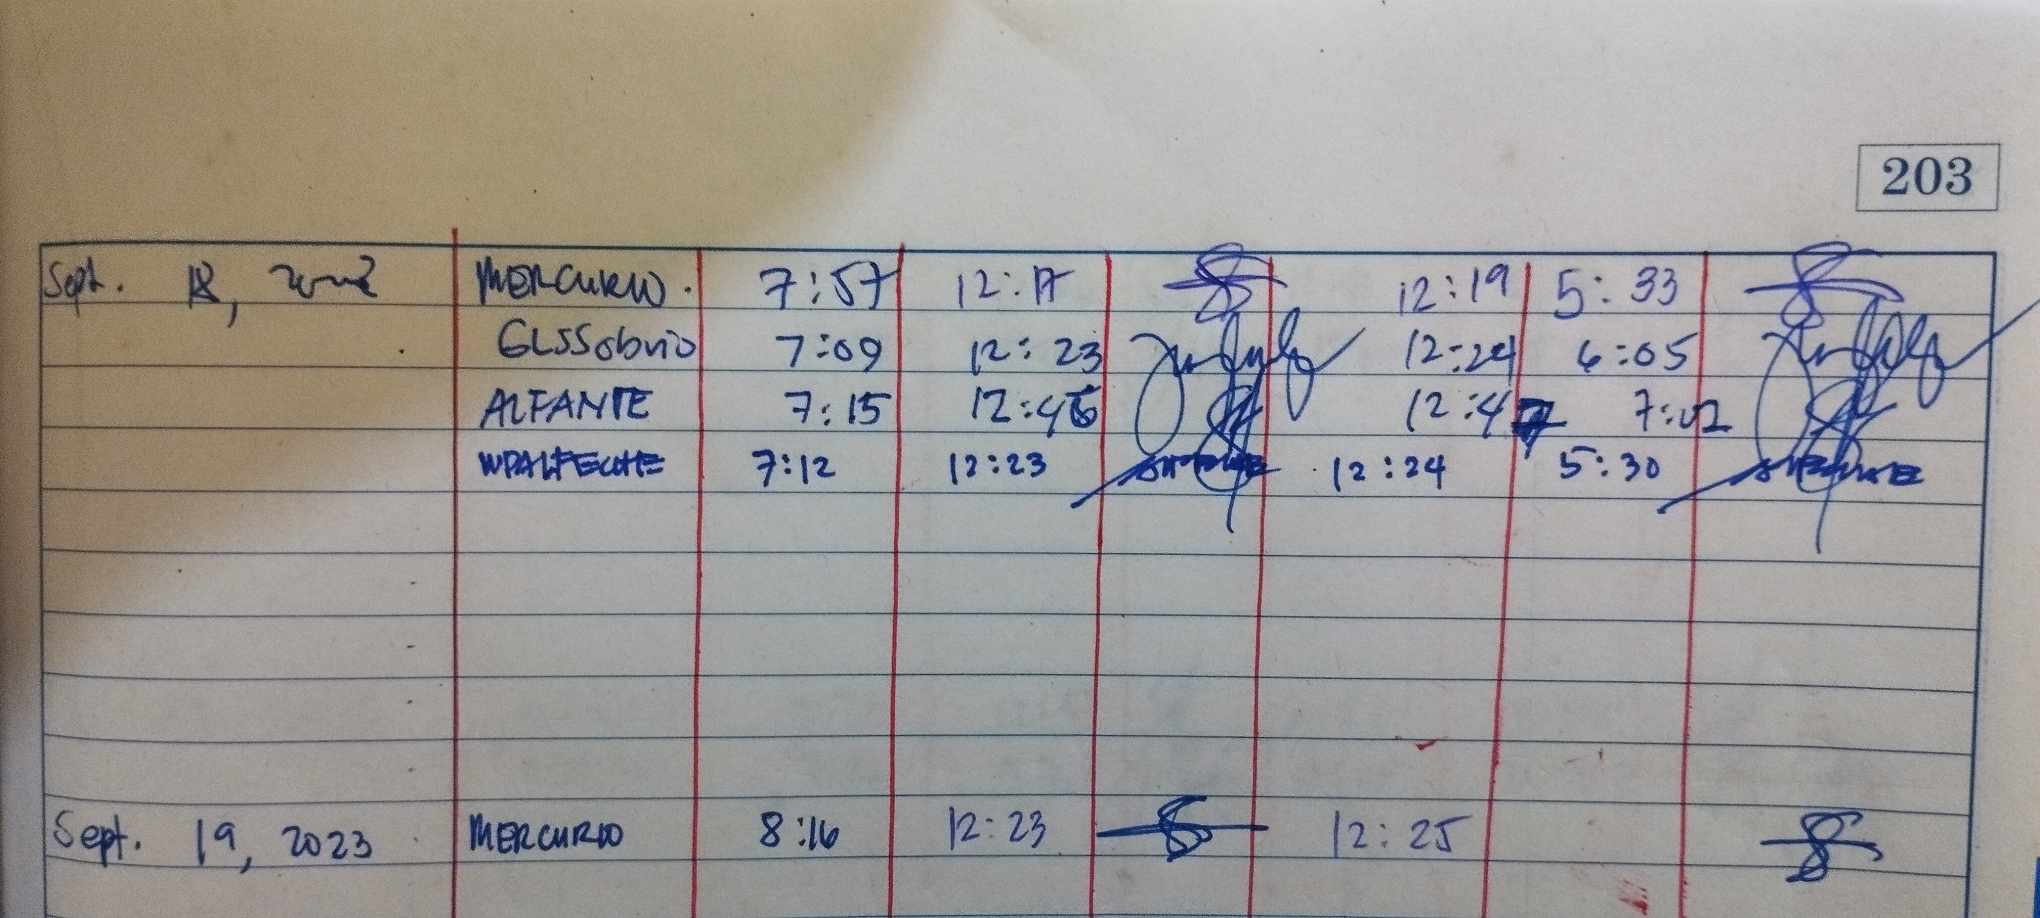 203
Sept. 18, MERCURIO. 7:57 12:17 12:19 5:33
GLSSobrio 7:09 12:23 12:24 6:05
ALFANTE 7:15 12:46 12:47 7:02
WPALFECHE 7:12 12:23 12:24 5:30
Sept. 19, 2023 MERCURIO 8:16 12:23 12:25